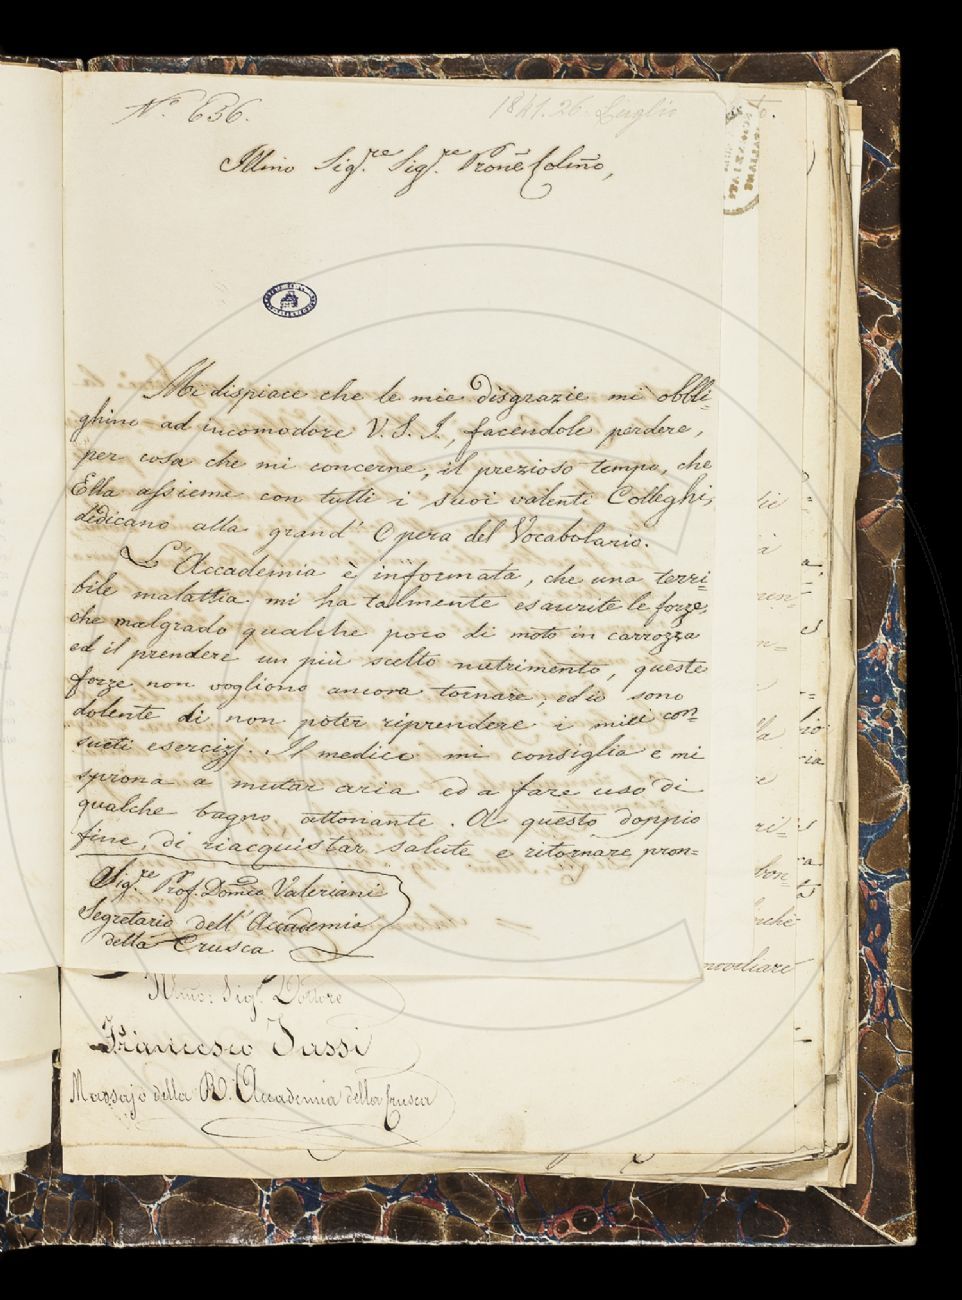 N.º 636.
1841. 26. Luglio
Illmo Sig.re Sig.re Prone Colmo,
Mi dispiace che le mie disgrazie mi obbli-
ghino ad incomodare V. S. I., facendole perdere,
per cosa che mi concerne, il prezioso tempo, che
Ella assieme con tutti i suoi valenti Colleghi,
dedicano alla grand' Opera del Vocabolario.
L'Accademia è informata, che una terri-
bile malattia mi ha talmente esaurite le forze,
che malgrado qualche poco di moto in carrozza
ed il prendere un più scelto nutrimento, queste
forze non vogliono ancora tornare, ed io sono
dolente di non poter riprendere i miei con-
sueti esercizj. Il medico mi consiglia e mi
sprona a mutar aria ed a fare uso di
qualche bagno attonante. A questo doppio
fine, di riacquistar salute e ritornare pron-
Sig.re Prof. Domco Valeriani
Segretario dell'Accademia
della Crusca
Illmo: Sig.r Dottore
Francesco Tassi
Massajo della R. Accademia della Crusca